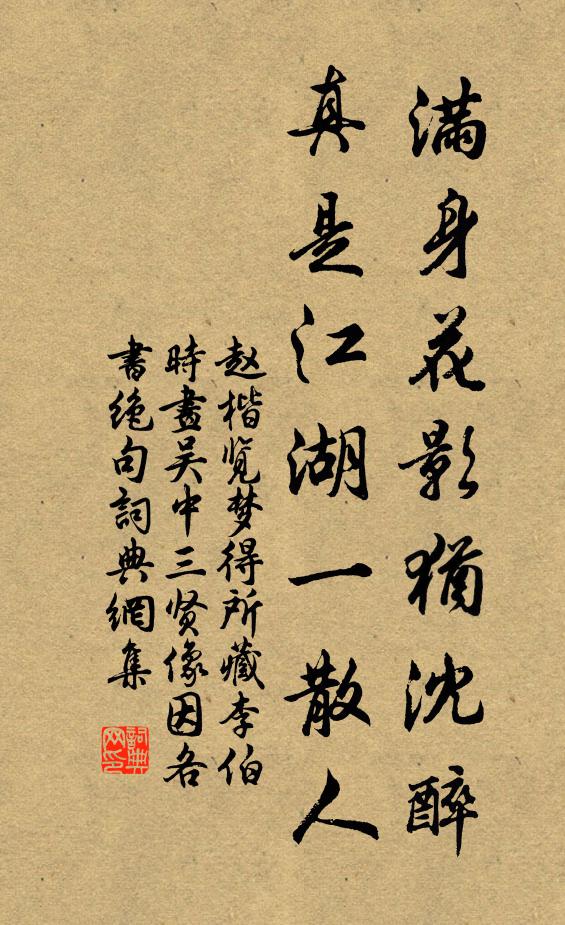 滿身花影猶沈醉
真是江湖一散人
赵楷览梦得所藏李伯
時畫吴中三贤像因各
書绝句詞典網集
詞典網印